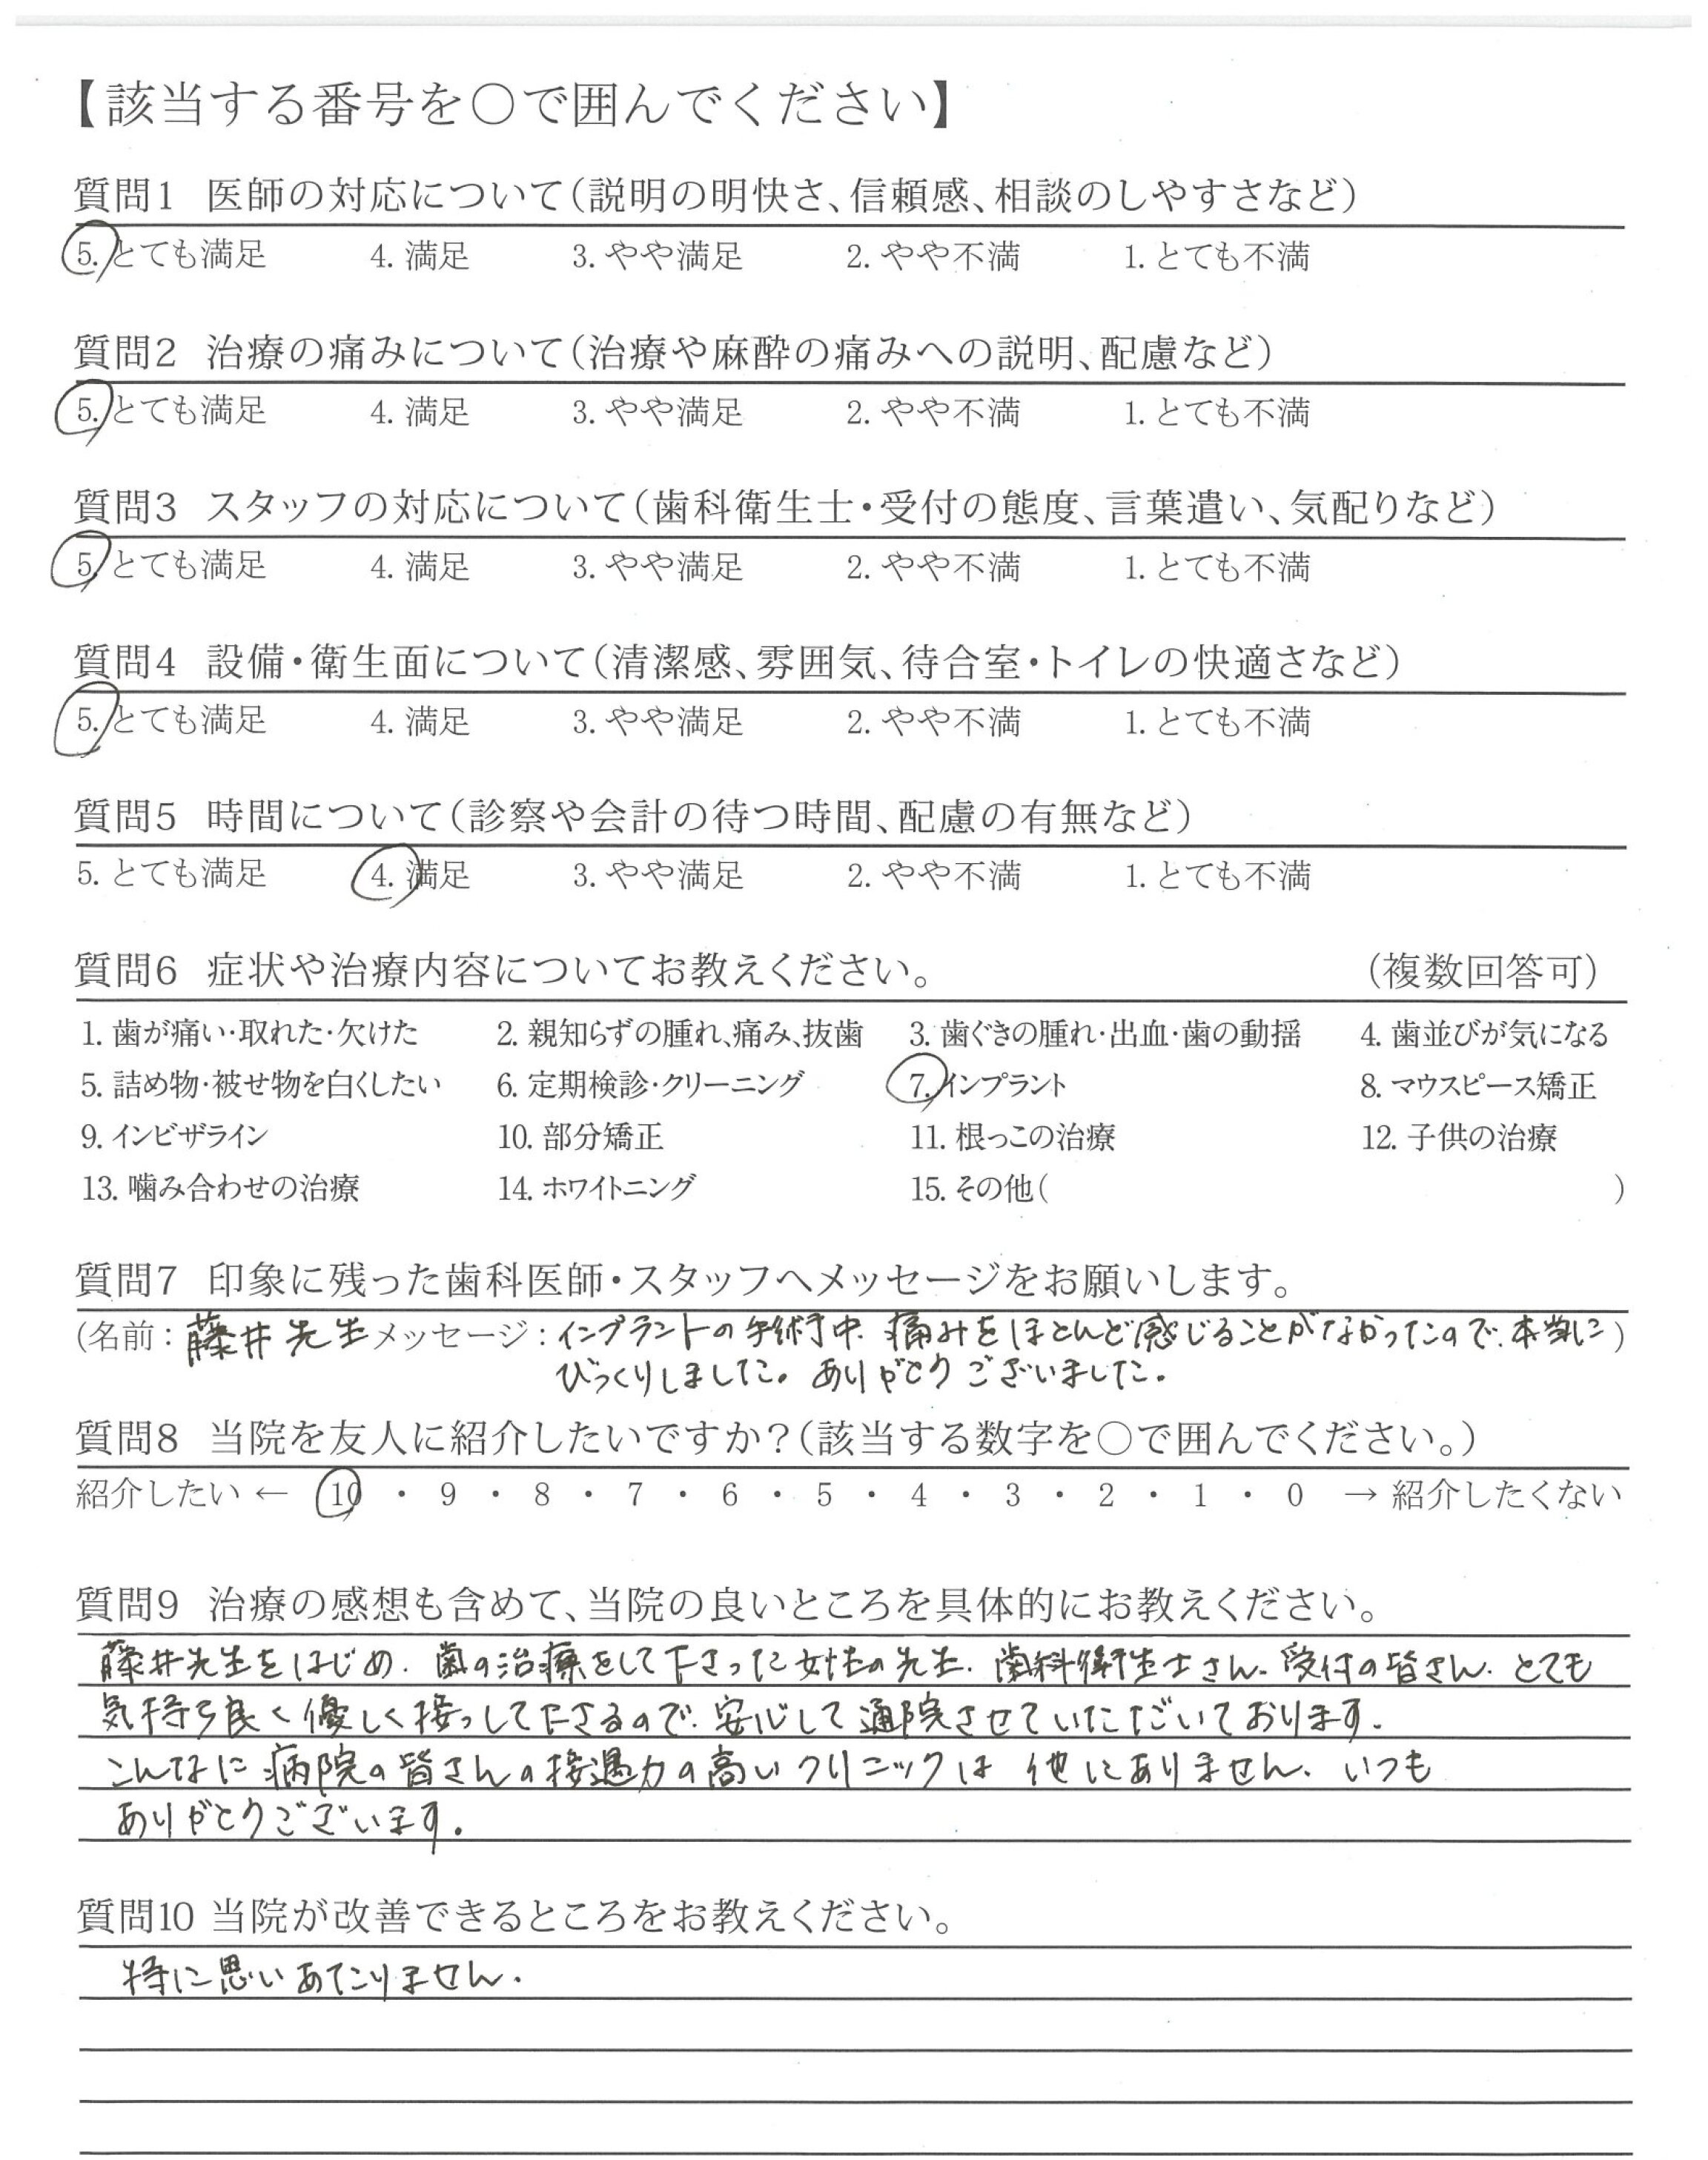 【該当する番号を○で囲んでください】
質問1 医師の対応について(説明の明快さ、信頼感、相談のしやすさなど)
5. とても満足 4. 満足 3. やや満足 2. やや不満 1. とても不満
質問2 治療の痛みについて(治療や麻酔の痛みへの説明、配慮など)
5. とても満足 4. 満足 3. やや満足 2. やや不満 1. とても不満
質問3 スタッフの対応について(歯科衛生士・受付の態度、言葉遣い、気配りなど)
5. とても満足 4. 満足 3. やや満足 2. やや不満 1. とても不満
質問4 設備・衛生面について(清潔感、雰囲気、待合室・トイレの快適さなど)
5. とても満足 4. 満足 3. やや満足 2. やや不満 1. とても不満
質問5 時間について(診察や会計の待つ時間、配慮の有無など)
5. とても満足 4. 満足 3. やや満足 2. やや不満 1. とても不満
質問6 症状や治療内容についてお教えください。 (複数回答可)
1. 歯が痛い・取れた・欠けた 2. 親知らずの腫れ、痛み、抜歯 3. 歯ぐきの腫れ・出血・歯の動揺 4. 歯並びが気になる
5. 詰め物・被せ物を白くしたい 6. 定期検診・クリーニング 7. インプラント 8. マウスピース矯正
9. インビザライン 10. 部分矯正 11. 根っこの治療 12. 子供の治療
13. 噛み合わせの治療 14. ホワイトニング 15. その他( )
質問7 印象に残った歯科医師・スタッフへメッセージをお願いします。
(名前:藤井先生 メッセージ:インプラントの手術中、痛みをほとんど感じることがなかったので、本当に)
びっくりしました。ありがとうございました。
質問8 当院を友人に紹介したいですか?(該当する数字を○で囲んでください。)
紹介したい ← 10 ・ 9 ・ 8 ・ 7 ・ 6 ・ 5 ・ 4 ・ 3 ・ 2 ・ 1 ・ 0 → 紹介したくない
質問9 治療の感想も含めて、当院の良いところを具体的にお教えください。
藤井先生をはじめ、歯の治療をして下さった女性の先生、歯科衛生士さん、受付の皆さん、とても
気持ち良く優しく接っして下さるので、安心して通院させていただいております。
こんなに病院の皆さんの接遇力の高いクリニックは他にありません。いつも
ありがとうございます。
質問10 当院が改善できるところをお教えください。
特に思いあたりません。